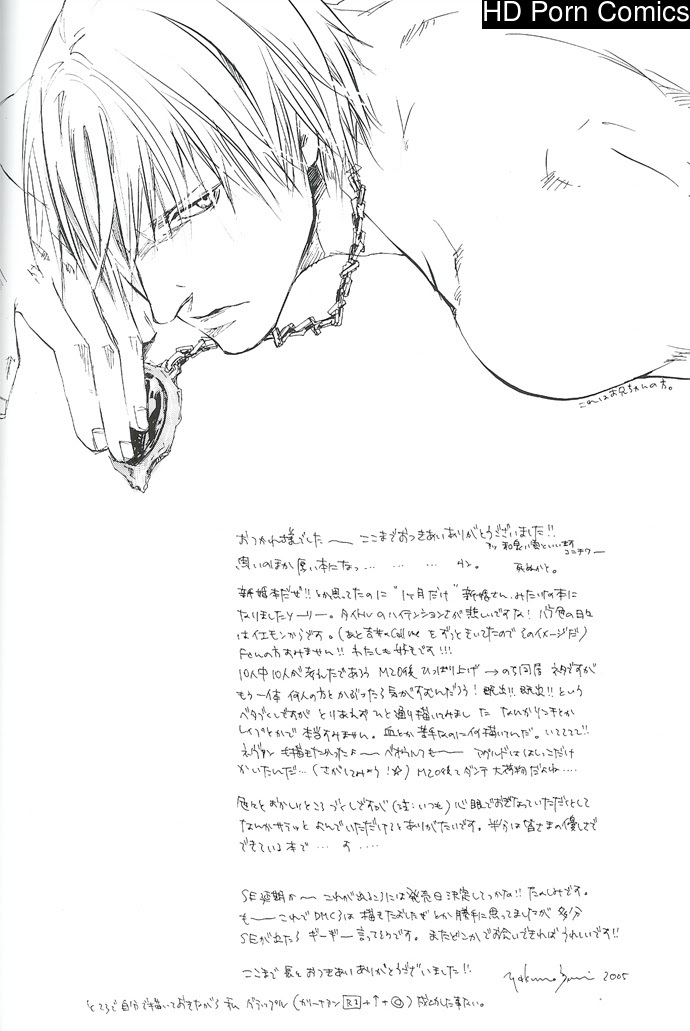 HD Porn Comics
これはお兄ちゃんの方。
おつかれ様でした〜 ここまでおつきあいありがとうございました!!
思いのほか厚い本になっ… … … … タ。 死ぬかと。
コニチワー
新婚本だぜ!!とか思ってたのに"1ヶ月だけ"新婚さんみたいな本に
なりましたソーリー。タイトルのハイテンションさが悲しいですな! バラ色の日々
はイエモンからです。(あと吉井の CALL ME をずっときいてたのでそのイメージだ)
Fanの方すみません!! わたしも好きです!!!
10人中10人が考えたであろう M20後 ひっぱり上げ→のち同居 ネタですが
もう一体 何人の方とかぶったら気がすむんだろう! 既出!! 既出!! という
ベタづくしですが とりあえず ひと通り描いてみまし た なんかリンチとか
レイプとかで 本当すみません。血とか苦手なのに何描いてんだ。いてててで!!
ネヴァン も描きたかったよ〜 ベオウルフも〜 アグルドはこっだけ
かいたんだ…(さがしてみよう!☆) M20後てダンテ 大荷物だよね…
色々とおかしいところ づくしですが(注:いつも)心眼でおぎなっていただくとして
なんかサラッと よんでいただけるとありがたいです。半分は皆さまの優しさで
できている本で … す …
SE延期か〜 これが出るころには発売日決定してっかな!! たのしみです。
も〜これでDMC3は 描きたおしたぜ とか勝手に思ってましたが 多分
SEが出たら ギーギー言ってるクチです。またどこかでお会いできればうれしいです!!
ここまで長々おつきあいありがとうございました!!
2005
ところで自分で描いておきながら私 グラップル(ガリーナタン R1+↑+◎)成功した事ない。